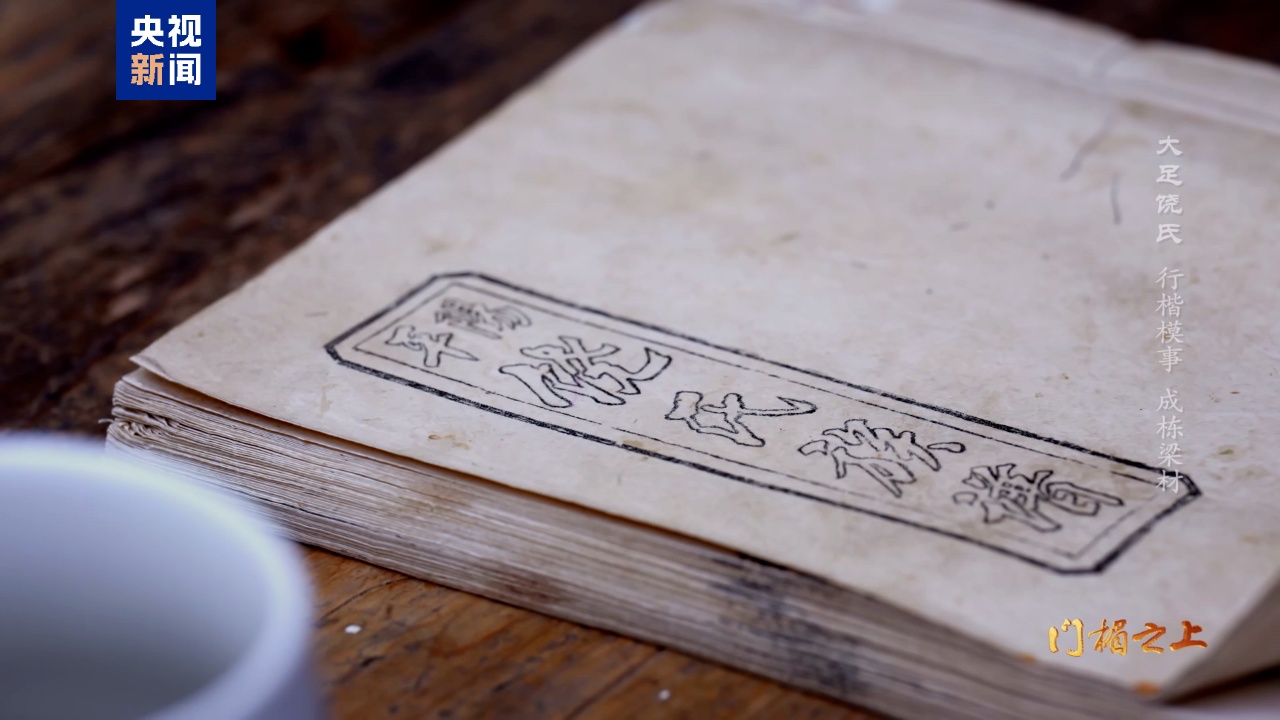 央视
新闻
大足饶氏 行楷模事 成栋梁材
平陽
饒氏族譜
门楣之上